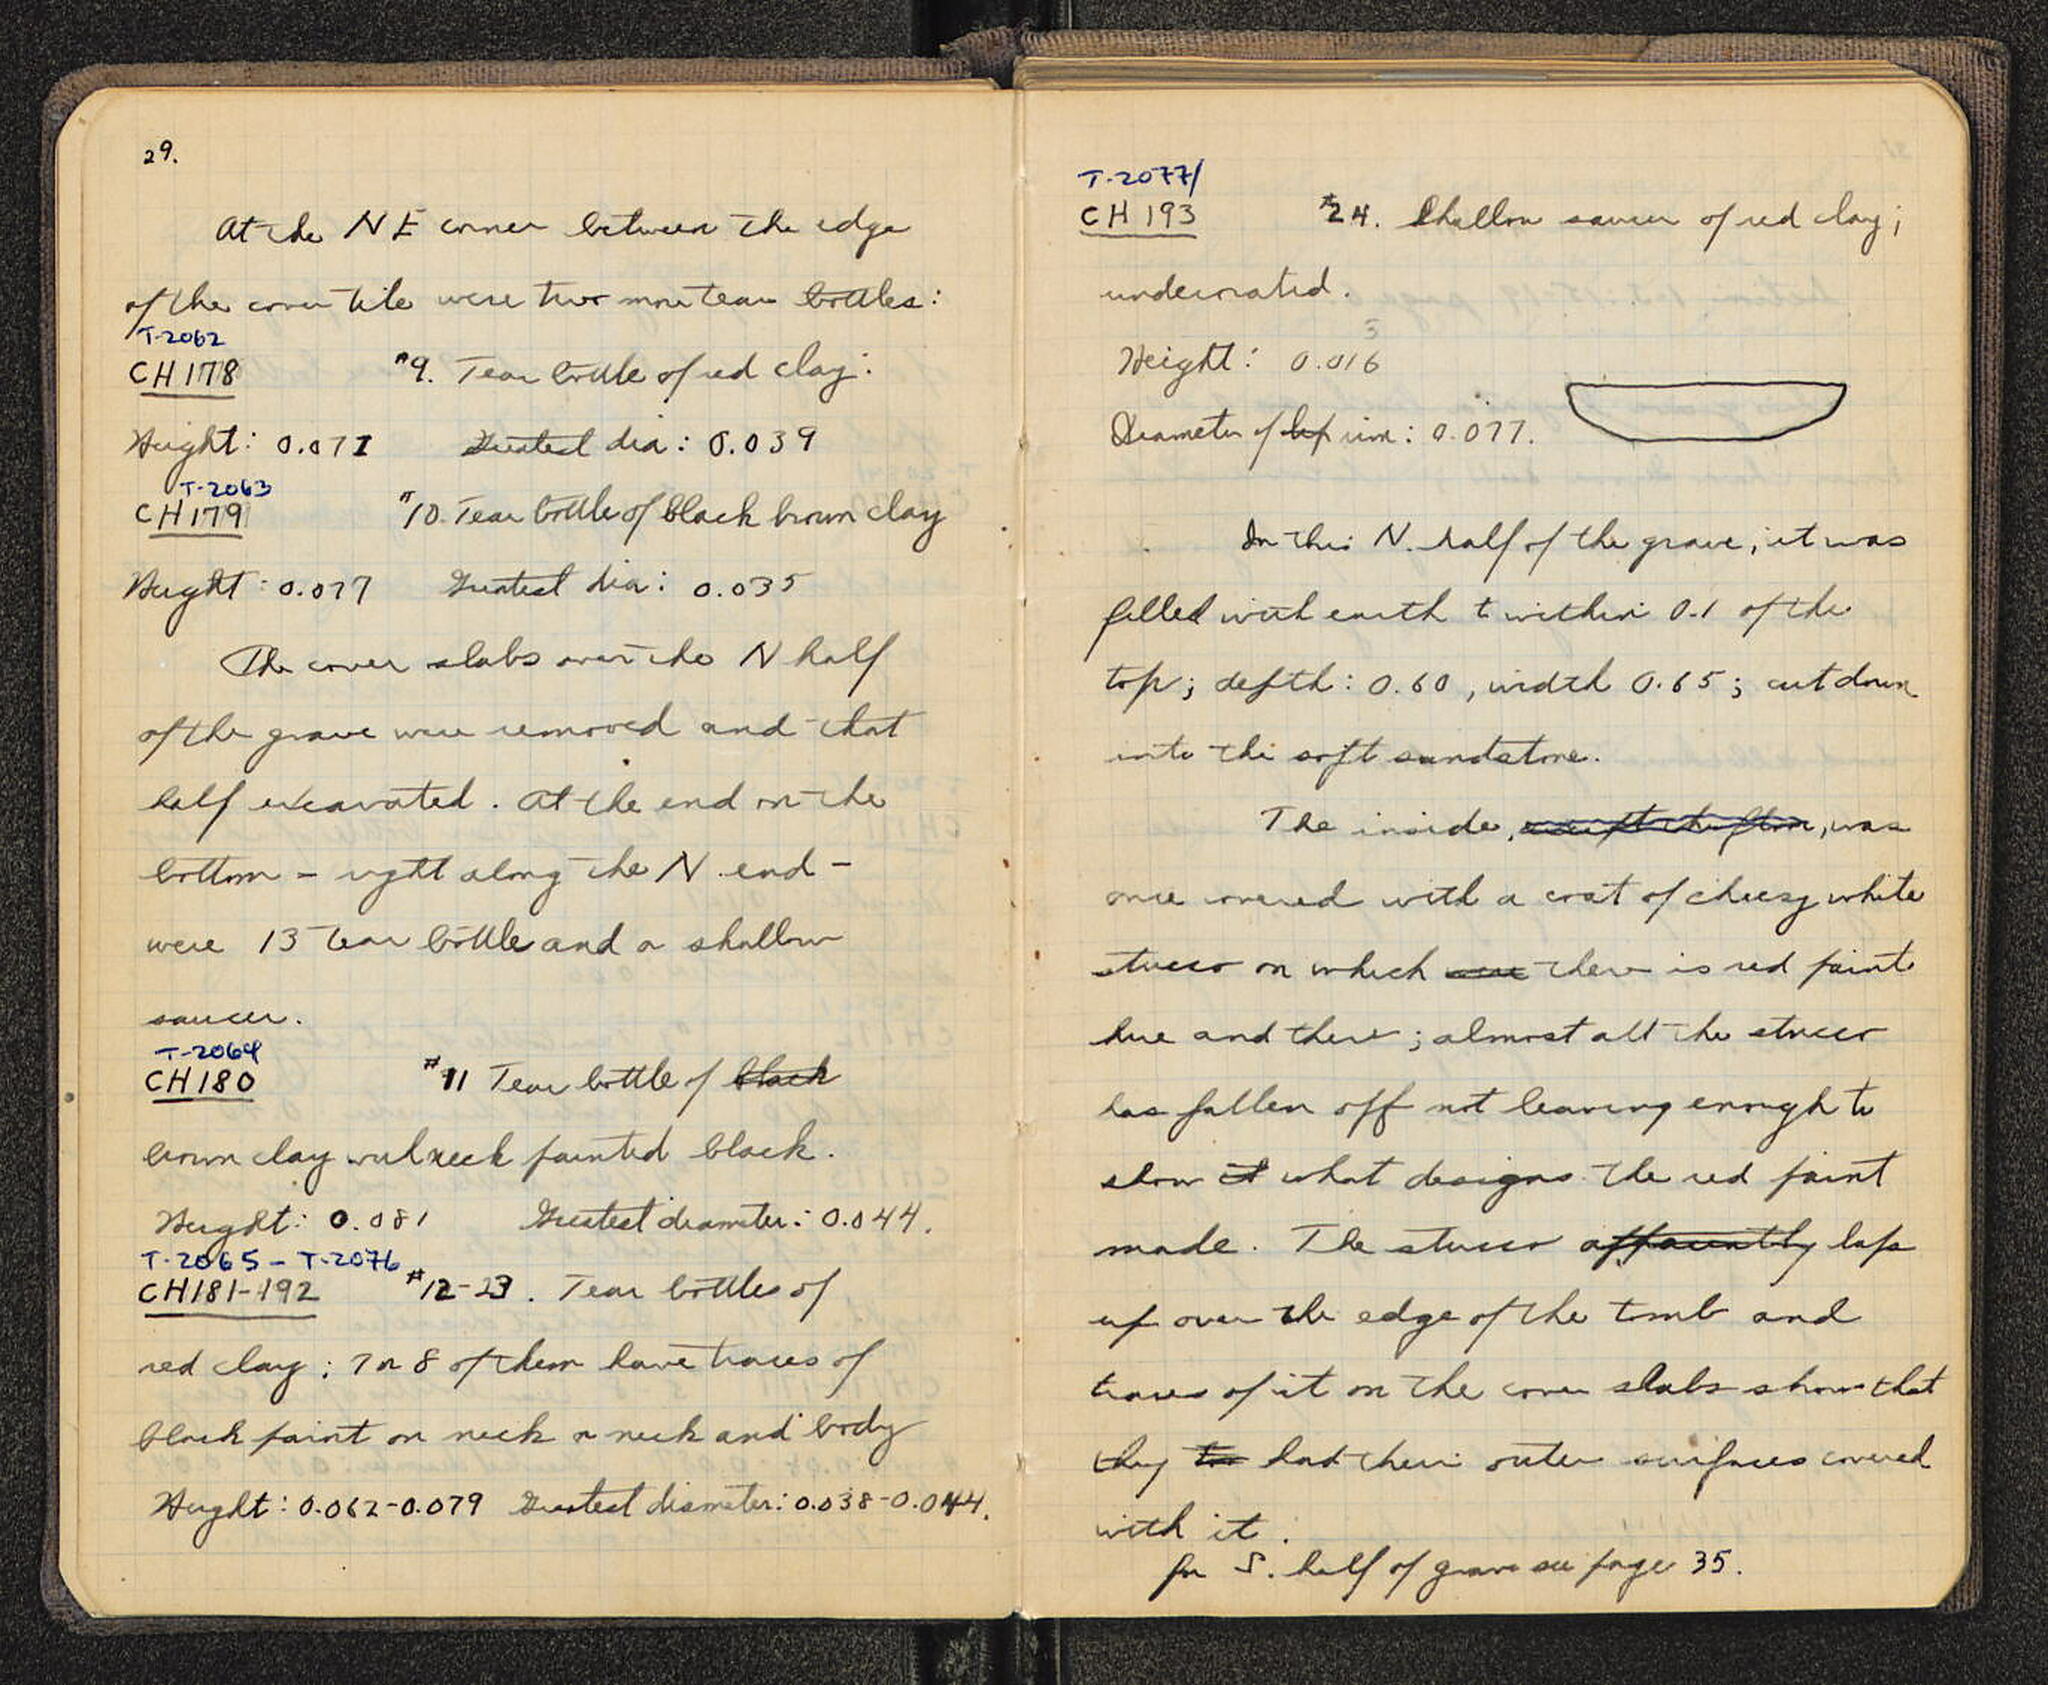 29.
At the NE corner between the edge
of the cover tile were two more tear bottles:
T-2062
CH178 #9. Tear bottle of red clay:
Height: 0.071 Greatest dia: 0.039
T-2063
CH179 #10. Tear bottle of black brown clay
Height: 0.077 Greatest dia: 0.035
The cover slabs over the N half
of the grave were removed and that
half excavated. At the end on the
bottom – right along the N. end –
were 13 tear bottle and a shallow
saucer.
T-2064
CH180 #11 Tear bottle of black
brown clay with neck painted black.
Height: 0.081 Greatest diameter: 0.044.
T-2065 – T-2076
CH181-192 #12-23. Tear bottles of
red clay; 7 or 8 of them have traces of
black paint on neck or neck and body
Height: 0.062-0.079 Greatest diameter: 0.038-0.044.
T-2077/
CH193 #24. Shallow saucer of red clay;
undecorated.
3
Height: 0.016
Diameter of lip rim: 0.077.
In this N. half of the grave, it was
filled with earth to within 0.1 of the
top; depth: 0.60, width 0.65; cut down
into the soft sandstone.
The inside, except the floor, was
once covered with a coat of cheesy white
stucco on which there is red paint
here and there; almost all the stucco
has fallen off not leaving enough to
show it what designs the red paint
made. The stucco apparently laps
up over the edge of the tomb and
traces of it on the cover slabs show that
they had their outer surfaces covered
with it.
for S. half of grave see page 35.